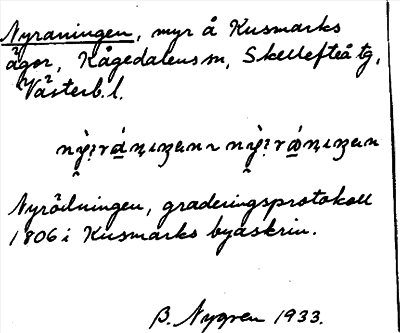 Nyraningen, myr å Kusmarks
ägor, Kågedalens sn, Skellefteå tg,
Västerb. l.
Nyrödningen, graderingsprotokoll
1806 i Kusmarks byaskrin.
B. Nygren 1933.